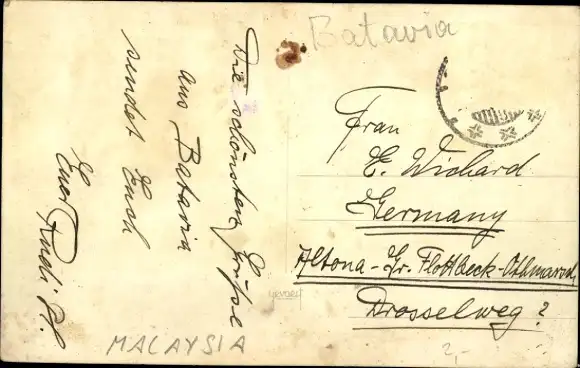 Batavia
Die schönsten Grüße
aus Batavia
sendet Euch
Euer Rudi
Frau
E. Wichard
Germany
Altona-Gr. Flottbeck-Othmarsch
Drosselweg ?
MALAYSIA
2,-